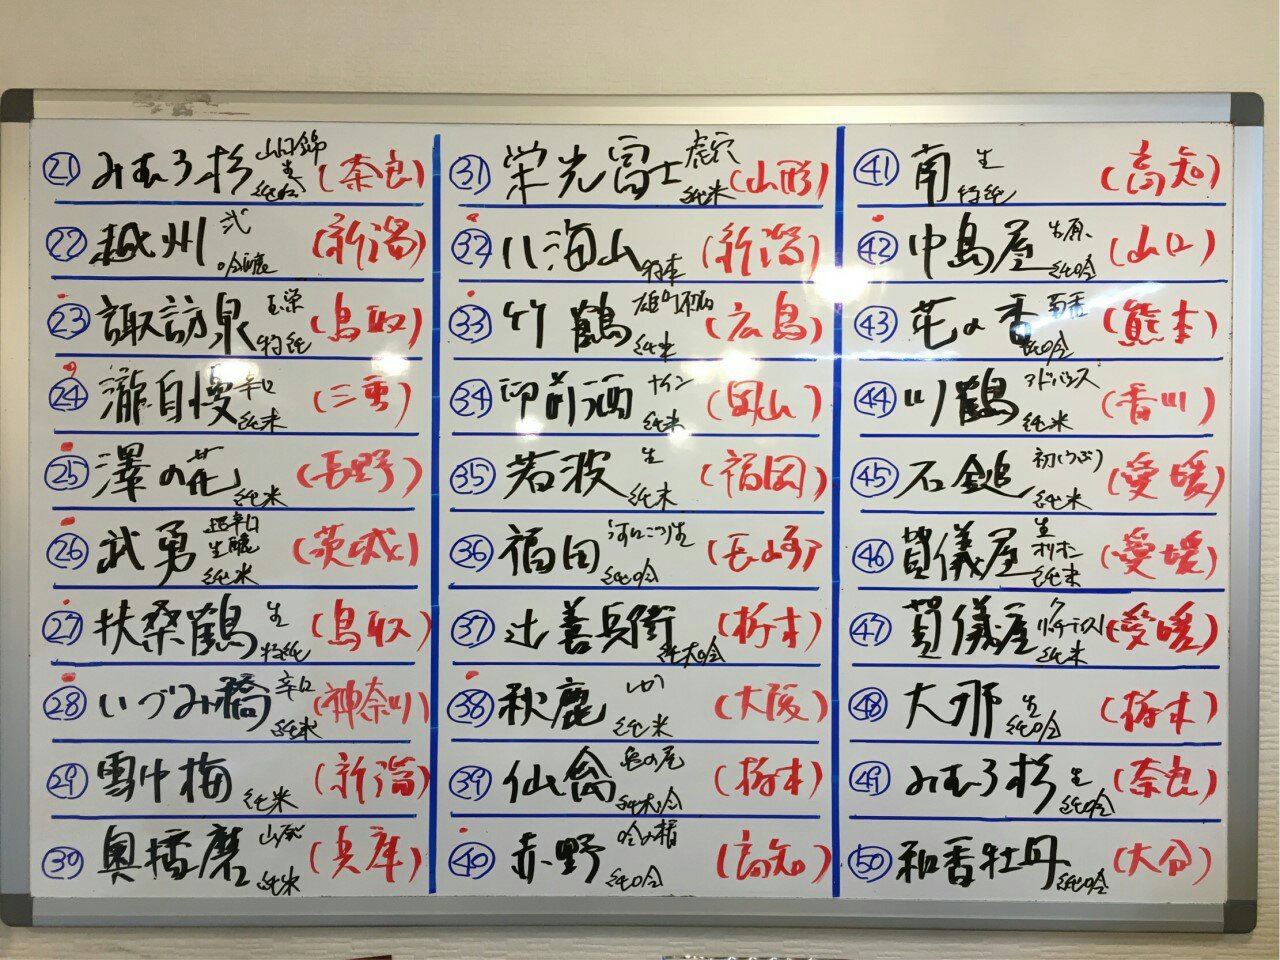 ㉑ みむろ杉 山田錦 生 (奈良)
㉒ 越州 弐 吟醸 (新潟)
㉓ 諏訪泉 玉栄 特純 (鳥取)
㉔ 瀧自慢 辛口 純米 (三重)
㉕ 澤の花 純米 (長野)
㉖ 武勇 超辛口 生酛 純米 (茨城)
㉗ 扶桑鶴 生 特純 (鳥取)
㉘ いづみ橋 辛口 純米 (神奈川)
㉙ 雪中梅 純米 (新潟)
㉚ 奥播磨 山廃 純米 (兵庫)
㉛ 栄光冨士 虎穴 純米 (山形)
㉜ 八海山 特本 (新潟)
㉝ 竹鶴 雄町 純米 (広島)
㉞ 御前酒 ナイン 純米 (岡山)
㉟ 若波 生 純米 (福岡)
㊱ 福田 純吟 (長崎)
㊲ 辻善兵衛 純大吟 (栃木)
㊳ 秋鹿 しか 純米 (大阪)
㊴ 仙禽 亀の尾 純大吟 (栃木)
㊵ 赤野 吟の夢 純吟 (高知)
㊶ 南 生 特純 (高知)
㊷ 中島屋 生原 純吟 (山口)
㊸ 花の香 純吟 (熊本)
㊹ 川鶴 アドバンス 純米 (香川)
㊺ 石鎚 初しぼり 純米 (愛媛)
㊻ 賀儀屋 生 純米 (愛媛)
㊼ 賀儀屋 純米 (愛媛)
㊽ 大那 生 純吟 (栃木)
㊾ みむろ杉 生 純吟 (奈良)
㊿ 和香牡丹 純吟 (大分)